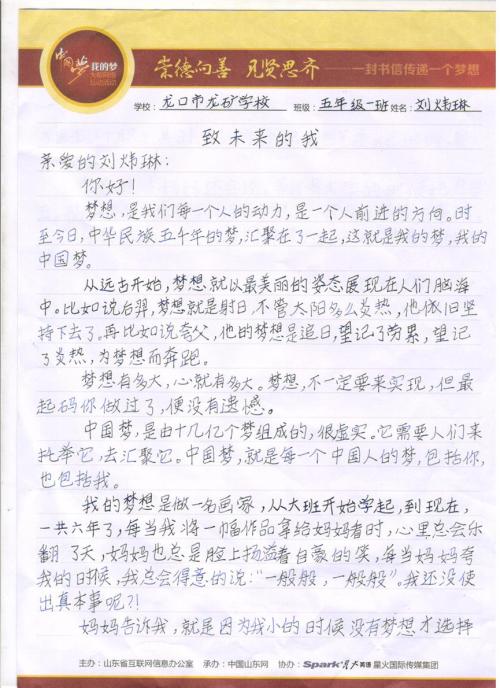 中国梦 我的梦
崇德向善 见贤思齐 一封书信传递一个梦想
学校: 龙口市龙矿学校 班级: 五年级一班 姓名: 刘炜琳
致未来的我
亲爱的刘炜琳:
你好!
梦想,是我们每一个人的动力,是一个人前进的方向。时
至今日,中华民族五千年的梦,汇聚在了一起,这就是我的梦,我的
中国梦。
从远古开始,梦想就以最美丽的姿态展现在人们脑海
中。比如说后羿,梦想就是射日,不管太阳多么炎热,他依旧坚
持下去了。再比如说夸父,他的梦想是追日,望记了劳累,望记
了炎热,为梦想而奔跑。
梦想有多大,心就有多大。梦想,不一定要来实现,但最
起码你做过了,便没有遗憾。
中国梦,是由十几亿个梦组成的,很虚实。它需要人们来
托举它,去汇聚它。中国梦,就是每一个中国人的梦,包括你,
也包括我。
我的梦想是做一名画家,从大班开始学起,到现在,
一共六年了,每当我将一幅作品拿给妈妈看时,心里总会乐
翻了天,妈妈也总是脸上扬溢着自豪的笑,每当妈妈夸
我的时候,我总会得意的说:“一般般,一般般”。我还没使
出真本事呢?!
妈妈告诉我,就是因为我小的时候没有梦想才选择
主办:山东省互联网信息办公室 承办:中国山东网 协办:Spark 星火英语 星火国际传媒集团